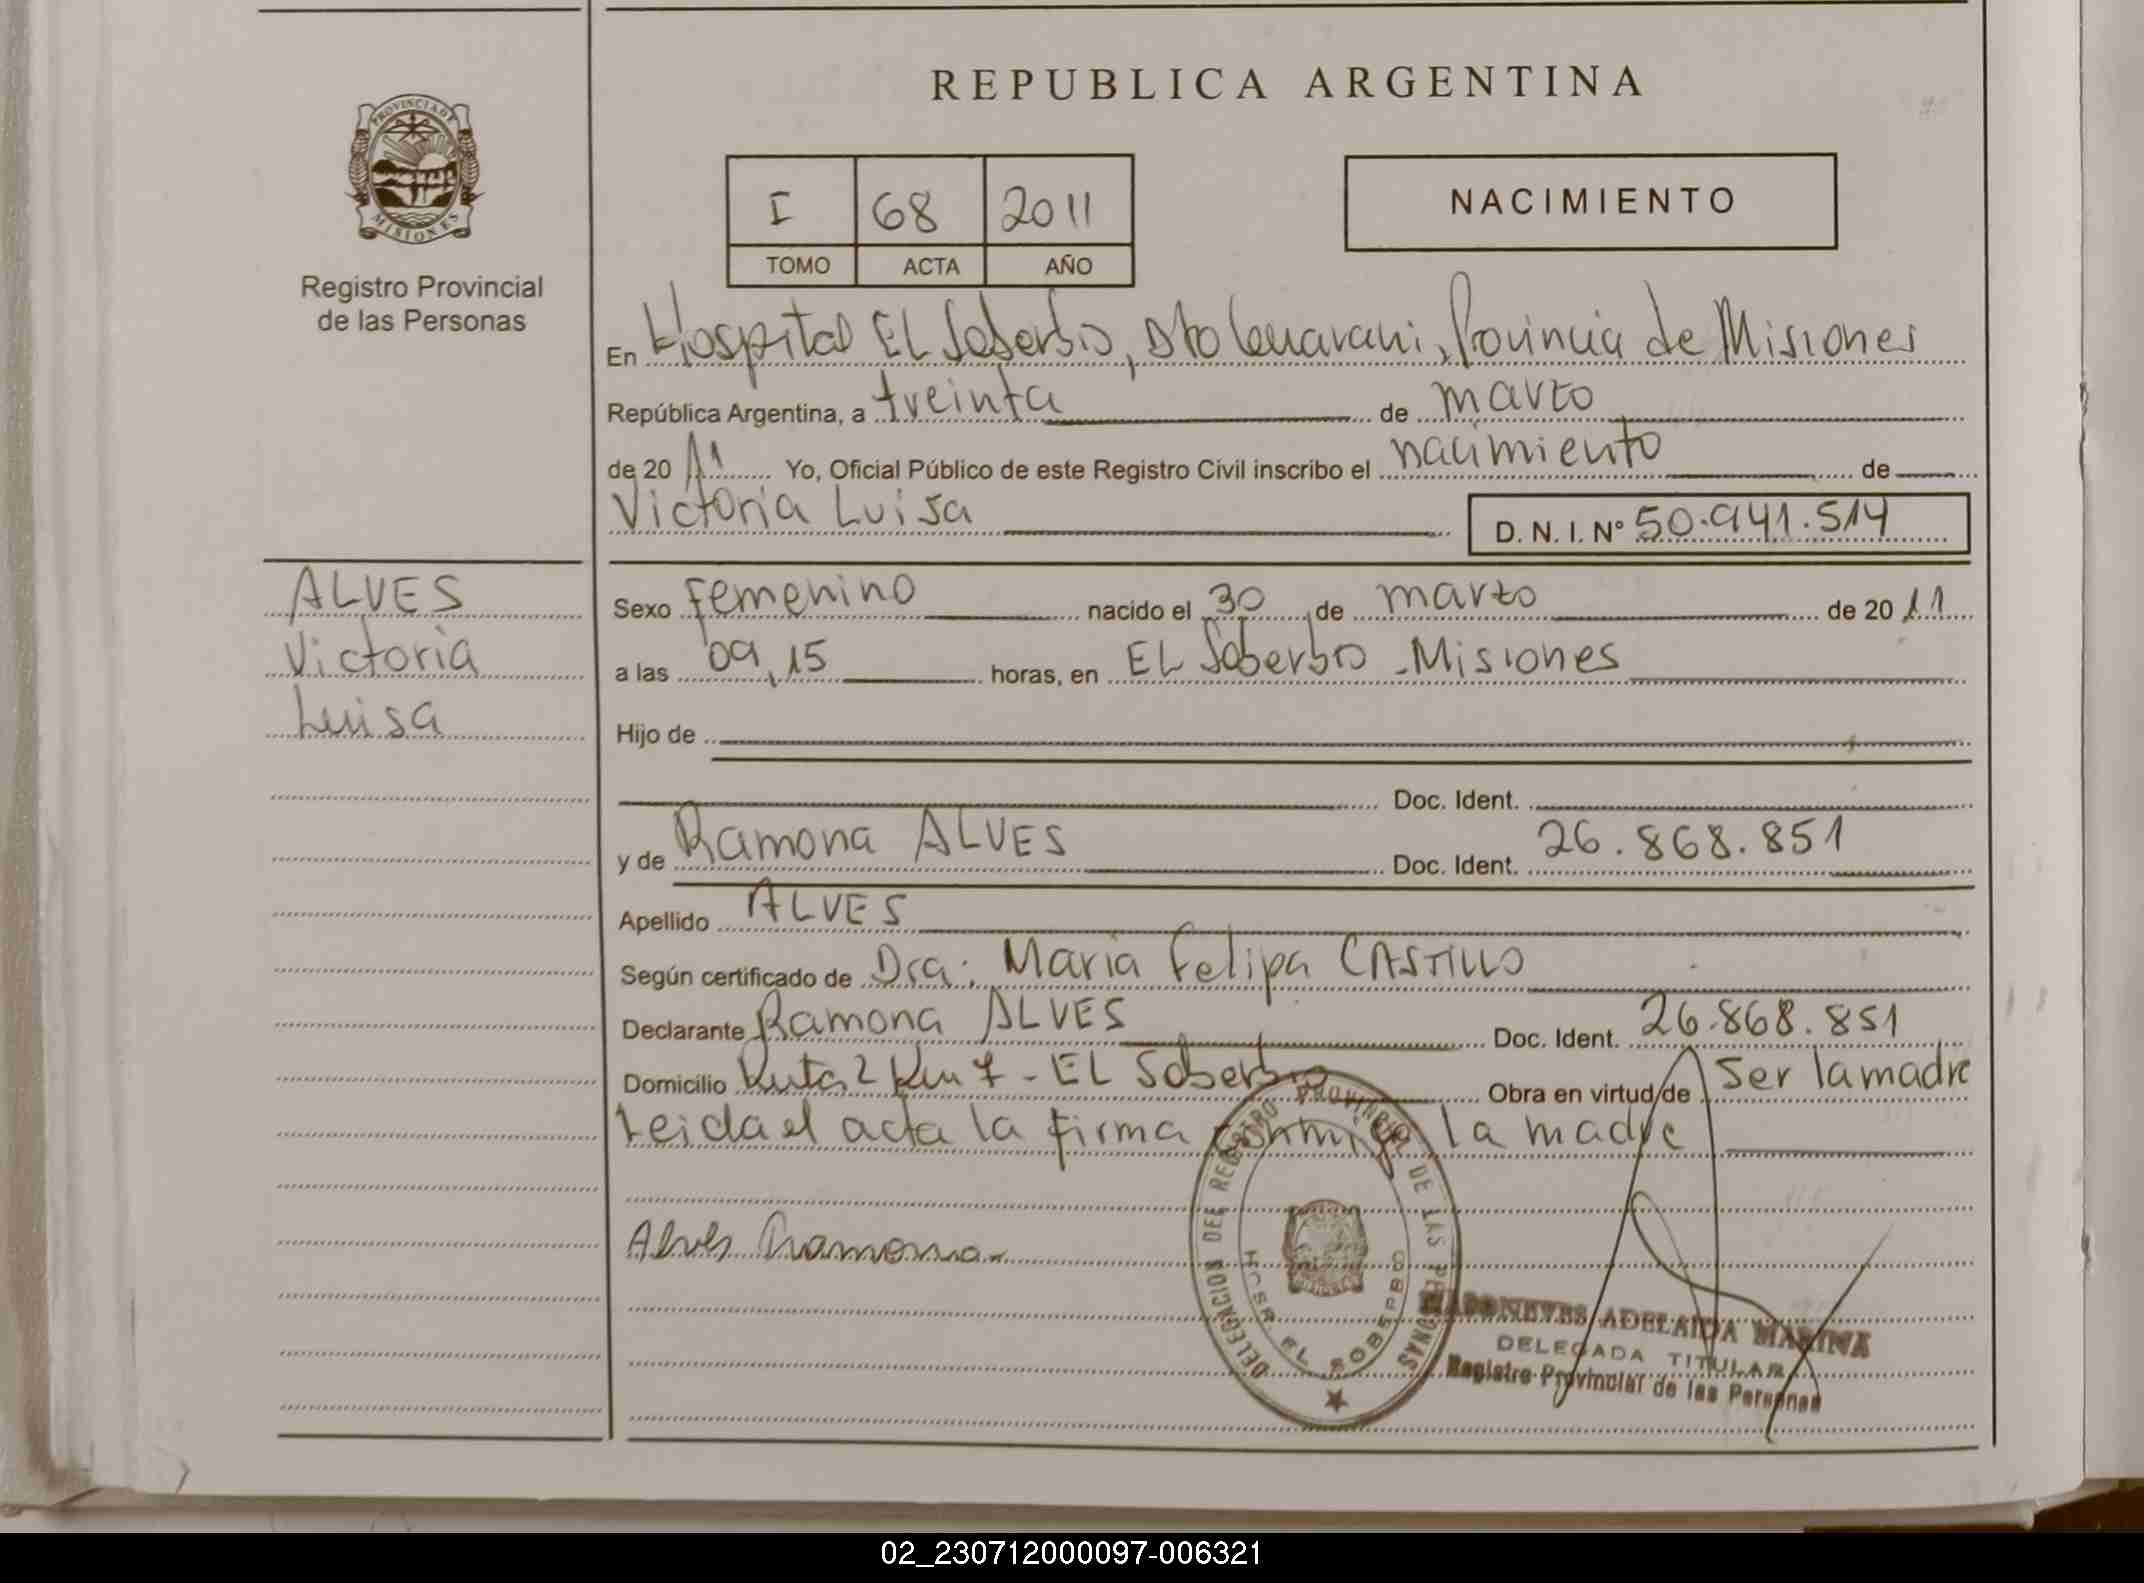 REPUBLICA ARGENTINA
PROVINCIA DE
MISIONES
Registro Provincial
de las Personas
I 68 2011
TOMO ACTA AÑO
NACIMIENTO
En Hospital EL Soberbio, Dto Guarani, Provincia de Misiones
República Argentina, a treinta de marzo
de 20 11 Yo, Oficial Público de este Registro Civil inscribo el nacimiento de
Victoria Luisa D. N. I. Nº 50.941.514
ALVES
Victoria
Luisa
Sexo Femenino nacido el 30 de marzo de 20 11
a las 09,15 horas, en EL Soberbio - Misiones
Hijo de
Doc. Ident.
y de Ramona ALVES Doc. Ident. 26.868.851
Apellido ALVES
Según certificado de Dra: Maria Felipa CASTILLO
Declarante Ramona ALVES Doc. Ident. 26.868.851
Domicilio Ruta 2 Km 7 - EL Soberbio Obra en virtud de Ser la madre
Leida el acta la firma conmigo la madre
Alves Ramona
DELEGACION DEL REGISTRO PROVINCIAL DE LAS PERSONAS
HOSP. EL SOBERBIO
ADELAIDA MARINA
DELEGADA TITULAR
Registro Provincial de las Personas
02_230712000097-006321